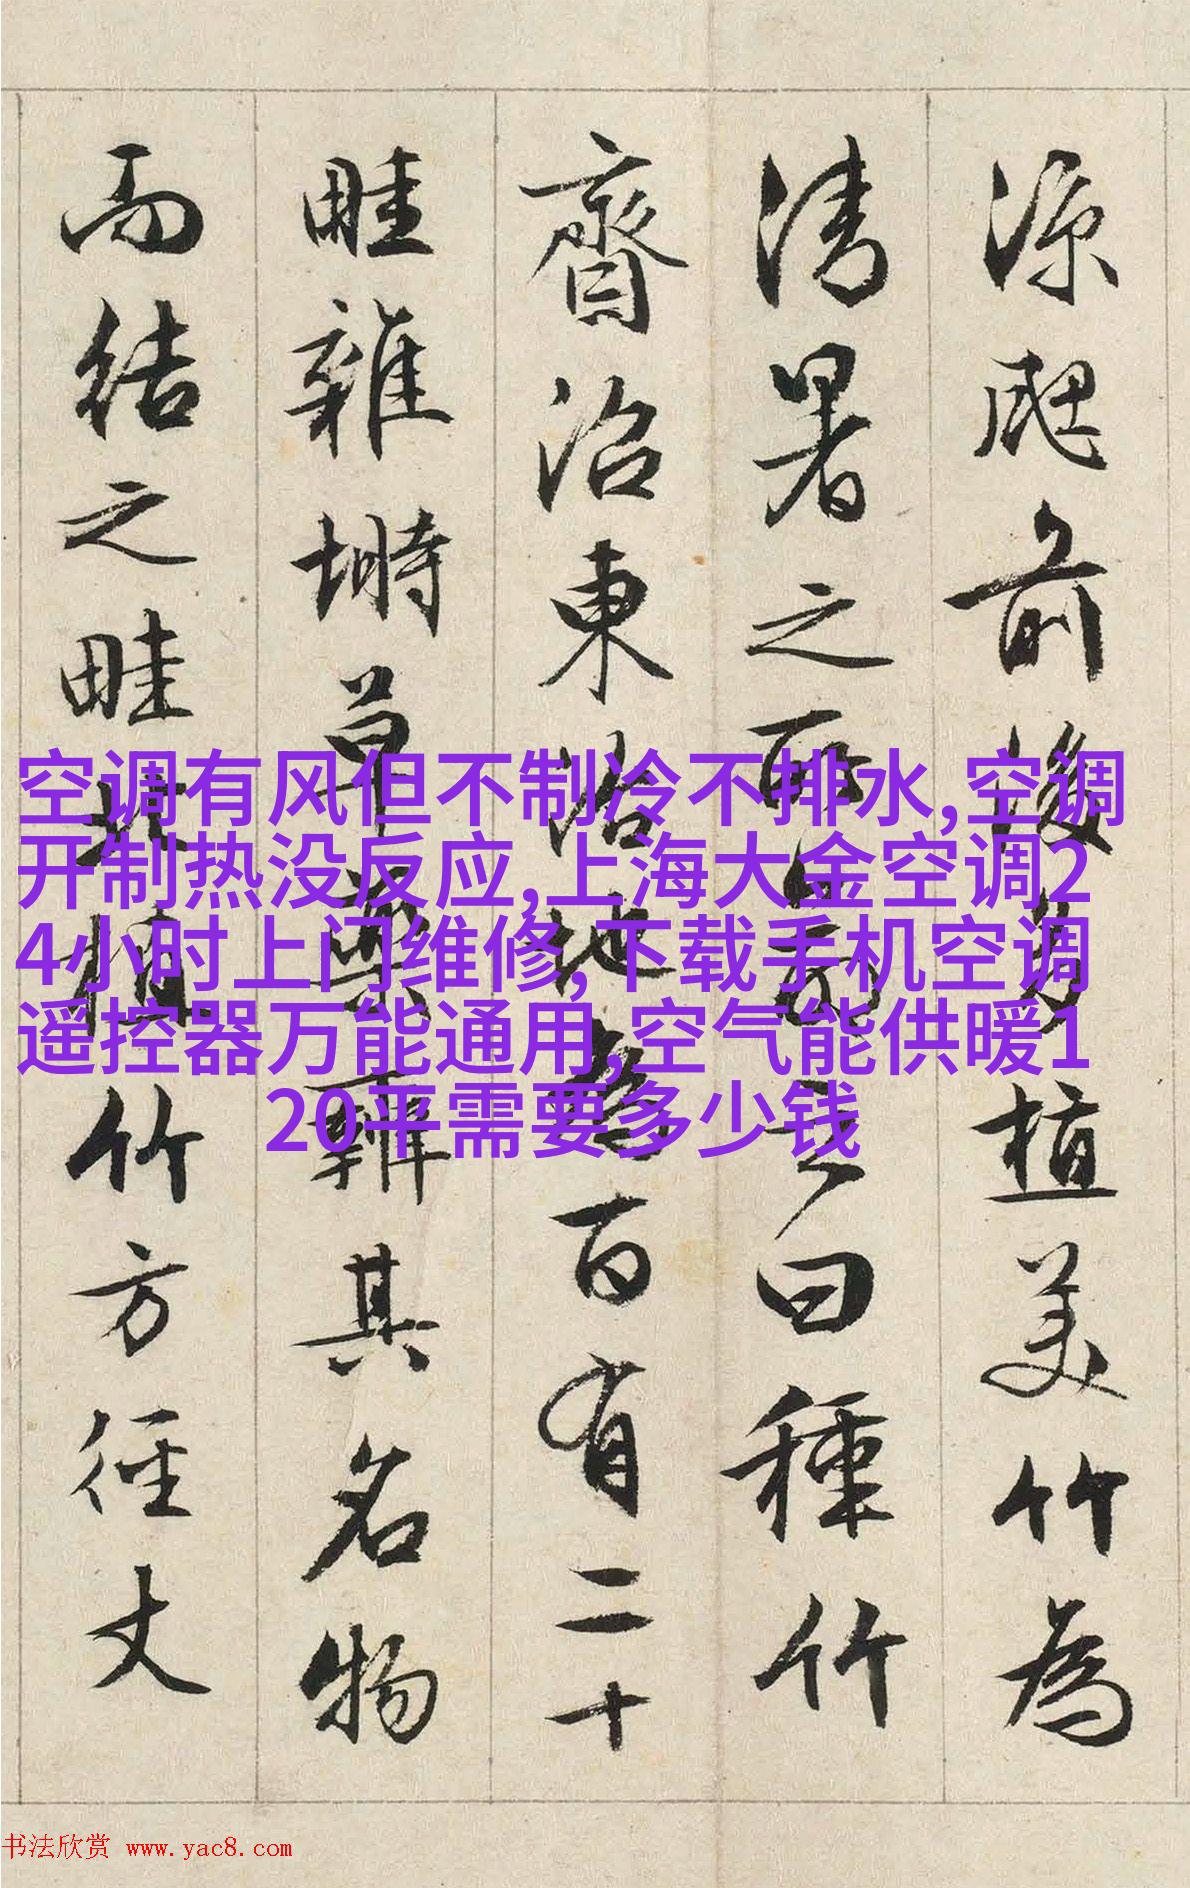 涼颸前後多植美竹為
清暑之所命之曰種竹
齋沼東治地為百有二十
畦雜蒔草藥辨其名物
而結之畦北植竹方徑丈
空调有风但不制冷不排水,空调
开制热没反应,上海大金空调2
4小时上门维修,下载手机空调
遥控器万能通用,空气能供暖1
20平需要多少钱
书法欣赏 www.yac8.com